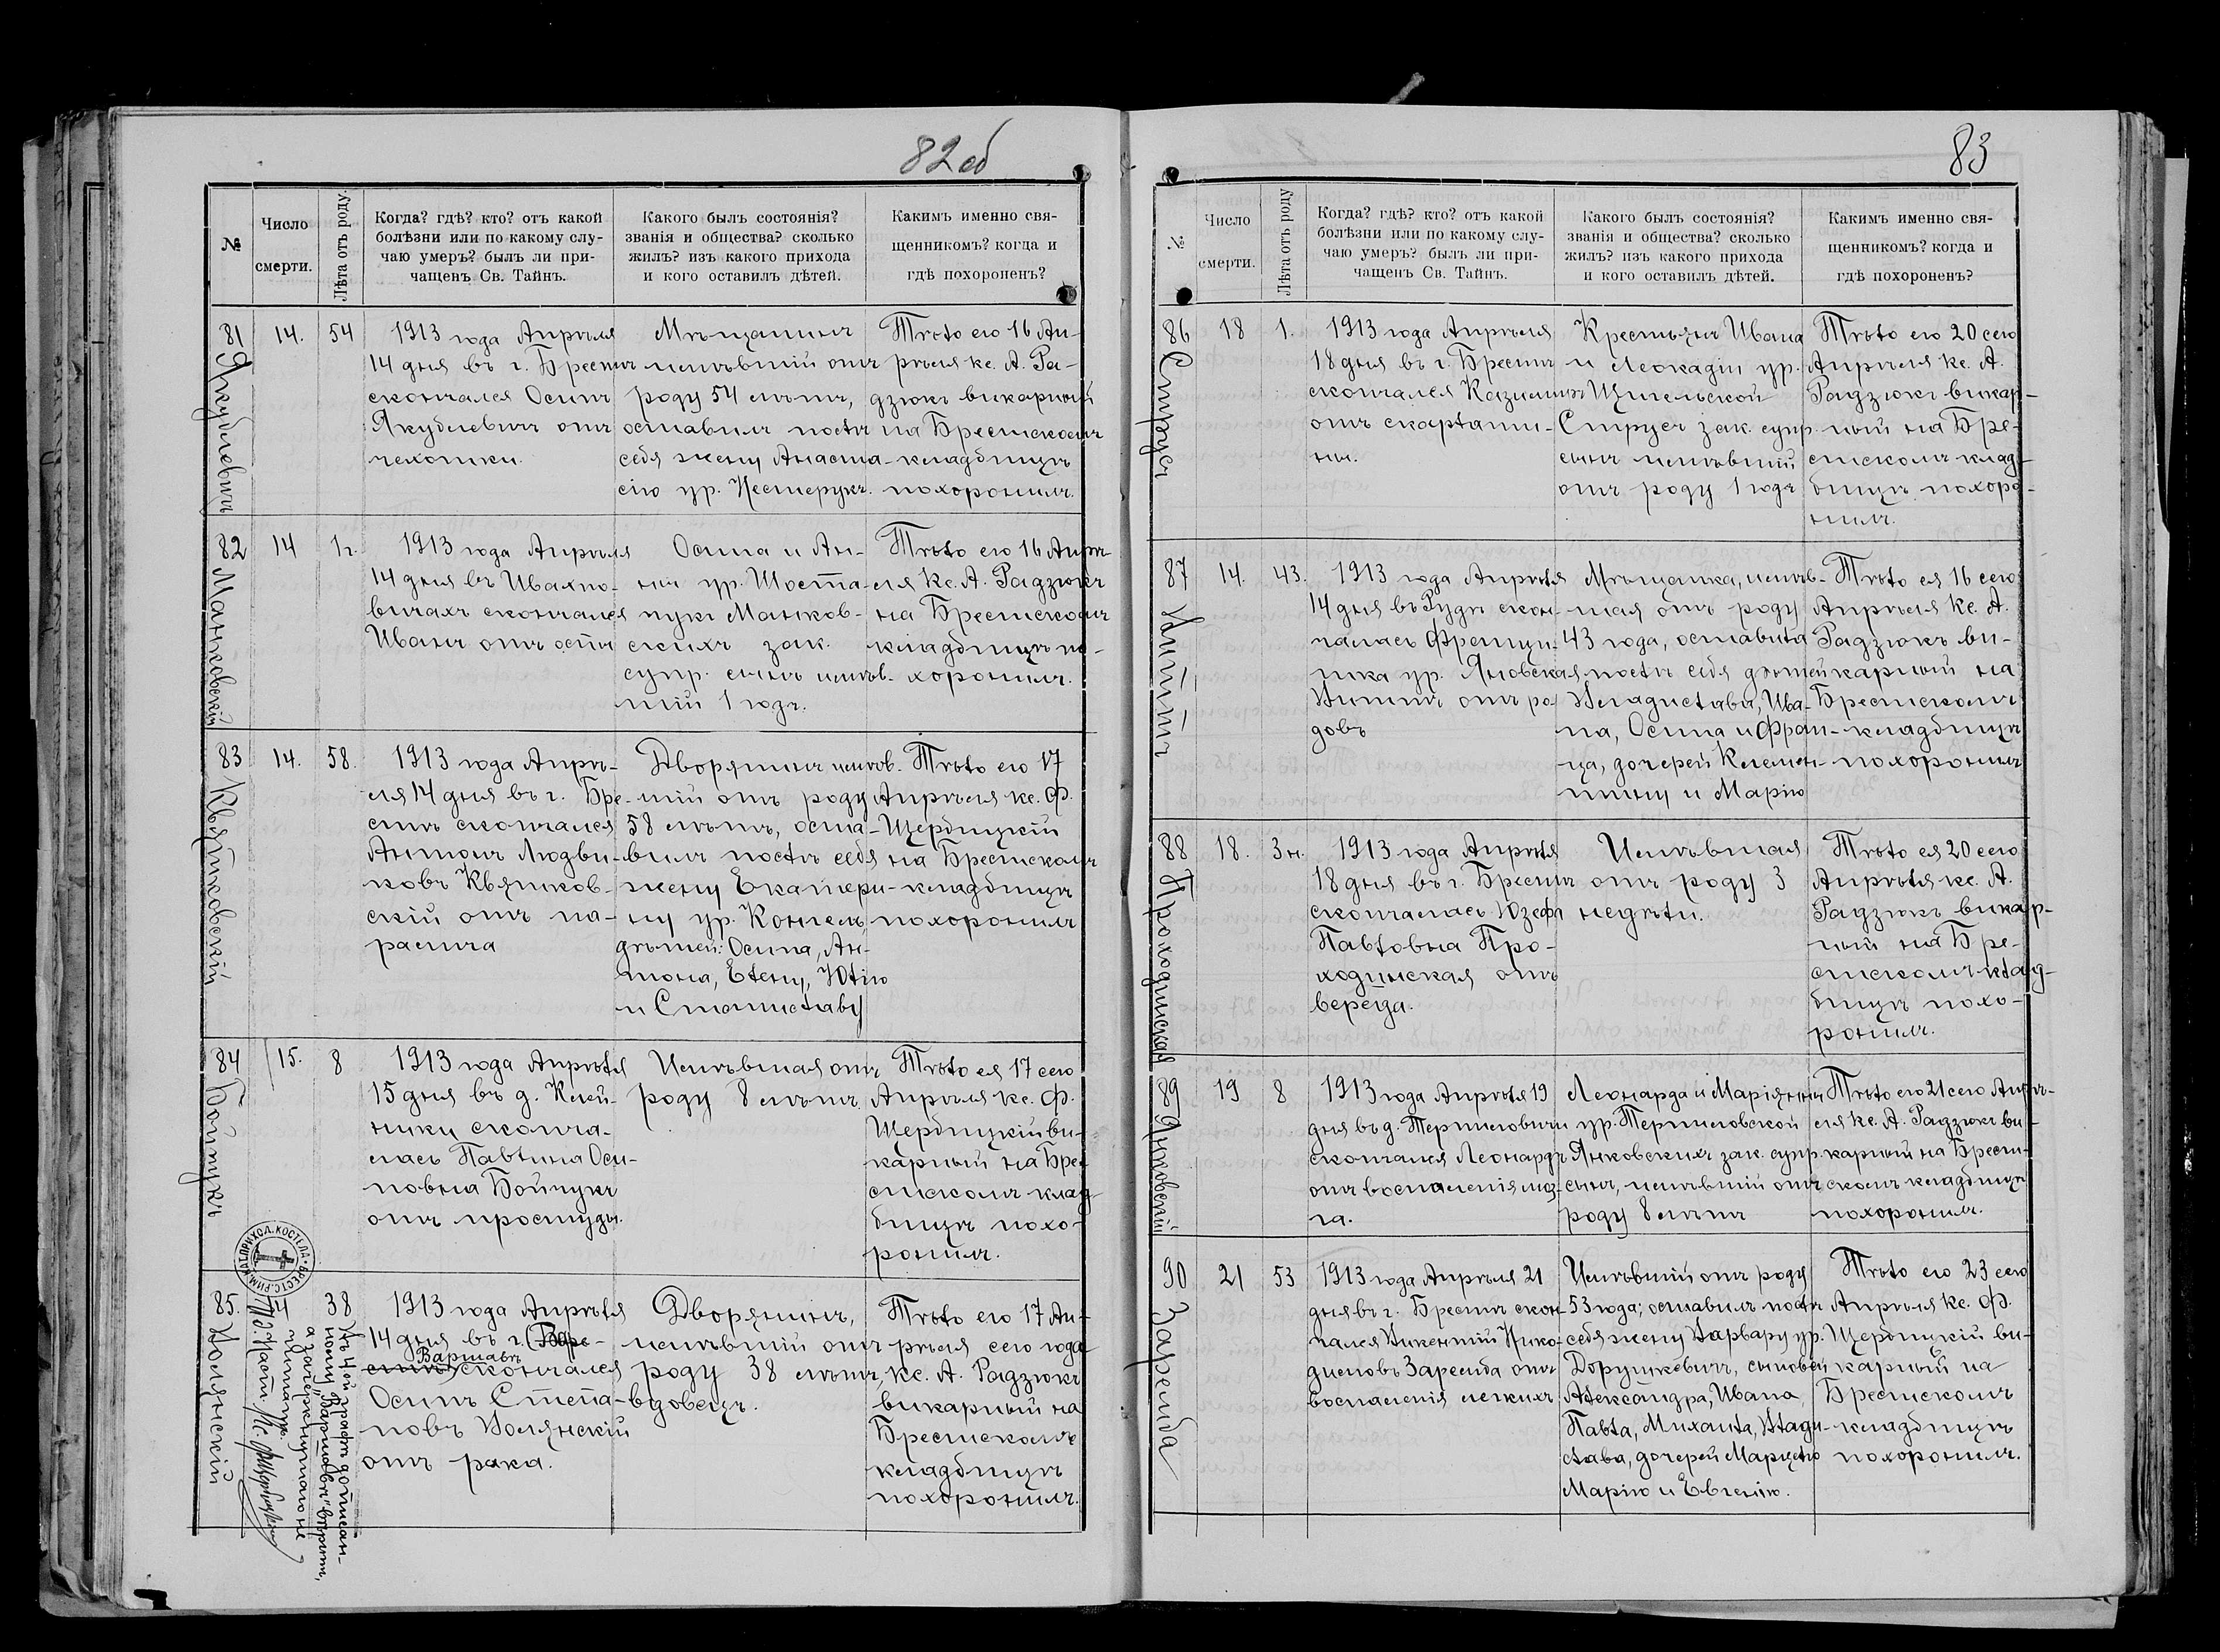 82 об
№
Число
смерти.
Лѣта отъ роду.
Когда? гдѣ? кто? отъ какой
болѣзни или по какому слу-
чаю умеръ? былъ ли при-
чащенъ Св. Тайнъ.
Какого былъ состоянія?
званія и общества? сколько
жилъ? изъ какого прихода
и кого оставилъ дѣтей.
Какимъ именно свя-
щенникомъ? когда и
гдѣ похороненъ?
81
Якубовичъ
14.
54
1913 года Апрѣля
14 дня въ г. Брестѣ
скончался Осипъ
Якубовичъ отъ
чехотки.
Мѣщанинъ
имѣвшій отъ
роду 54 лѣтъ,
оставилъ послѣ
себя жену Анаста-
сію ур. Нестерукъ.
Тѣло его 16 Ап-
рѣля кс. А. Ра-
дзюкъ викарный
на Брестскомъ
кладбищѣ
похоронилъ.
82
Манковскій
14
1 г.
1913 года Апрѣля
14 дня въ Ивахно-
вичахъ скончался
Иванъ отъ оспы
Осипа и Ан-
ны ур. Шоста-
чукъ Манков-
скихъ зак.
супр. сынъ имѣв-
шій 1 годъ.
Тѣло его 16 Апрѣ-
ля Кс. А. Радзюкъ
на Брестскомъ
кладбищѣ по-
хоронилъ.
83
Квятковскій
14.
58.
1913 года Апрѣ-
ля 14 дня въ г. Бре-
стѣ скончался
Антонъ Людви-
ковъ Квятков-
скій отъ па-
ралича
Дворянинъ имѣв-
шій отъ роду
58 лѣтъ, оста-
вилъ послѣ себя
жену Екатери-
ну ур. Концель,
дѣтей: Осипа, Ан-
тона, Елену, Юлію
и Станиславу
Тѣло его 17
Апрѣля кс. Ф.
Щербицкій
на Брестскомъ
кладбищѣ
похоронилъ
84
Бойчукъ
15.
8
1913 года Апрѣля
15 дня въ д. Клей-
ники сконча-
лась Павлина Оси-
повна Бойчукъ
отъ простуды.
Имѣвшая отъ
роду 8 лѣтъ.
Тѣло ея 17 сего
Апрѣля кс. Ф.
Щербицкій ви-
карный на Бре-
стскомъ клад-
бищѣ похо-
ронилъ.
БРЕСТС. РИМ. КАТ. ПРИХОД. КОСТЕЛА
85.
Волянскій
14
38
Въ 4ой графѣ дописан-
ному "Варшавѣ" вѣрить,
а зачеркнутаго не
читать.
1913 года Апрѣля
14 дня въ г. Бре-
стѣ Варшавѣ скончался
Осипъ Степа-
новъ Волянскій
отъ рака.
Дворянинъ,
имѣвшій отъ
роду 38 лѣтъ,
вдовецъ.
Тѣло его 17 Ап-
рѣля сего года
кс. А. Радзюкъ
викарный на
Брестскомъ
кладбищѣ
похоронилъ.
83
№
Число
смерти.
Лѣта отъ роду
Когда? гдѣ? кто? отъ какой
болѣзни или по какому слу-
чаю умеръ? былъ ли при-
чащенъ Св. Тайнъ.
Какого былъ состоянія?
званія и общества? сколько
жилъ? изъ какого прихода
и кого оставилъ дѣтей.
Какимъ именно свя-
щенникомъ? когда и
гдѣ похороненъ?
86
Струсъ
18
1.
1913 года Апрѣля
18 дня въ г. Брестѣ
скончался Казимиръ
отъ скарлати-
ны.
Крестьянъ Ивана
и Леокадіи ур.
Щигельской
Струсъ зак. супр.
сынъ имѣвшій
отъ роду 1 годъ
Тѣло его 20 сего
Апрѣля кс. А.
Радзюкъ викар-
ный на Бре-
стскомъ клад-
бищѣ похоро-
нилъ.
87
Виттъ
14.
43.
1913 года Апрѣля
14 дня въ Рудѣ скон-
чалась Францы-
шка ур. Яновская
Виттъ отъ ро-
довъ
Мѣщанка, имѣв-
шая отъ роду
43 года, оставила
послѣ себя дѣтей
Владислава, Ива-
на, Осипа и Фран-
ца, дочерей Клемен-
тину и Марію
Тѣло ея 16 сего
Апрѣля Кс. А.
Радзюкъ ви-
карный на
Брестскомъ
кладбищѣ
похоронилъ
88
Проходинская
18.
3 н.
1913 года Апрѣля
18 дня въ г. Брестѣ
скончалась Юзефа
Павловна Про-
ходинская отъ
вереда.
Имѣвшая
отъ роду 3
недѣли.
Тѣло ея 20 сего
Апрѣля кс. А.
Радзюкъ викар-
ный на Бре-
стскомъ клад-
бищѣ похо-
ронилъ.
89
Янковскій
19
8
1913 года Апрѣля 19
дня въ д. Терпиловичи
скончался Леонардъ
отъ воспаленія моз-
га.
Леонарда и Маріянны
ур. Терпиловской
Янковскихъ зак. супр.
сынъ, имѣвшій отъ
роду 8 лѣтъ
Тѣло его 21 сего Апрѣ-
ля кс. А. Радзюкъ ви-
карный на Брест-
скомъ кладбищѣ
похоронилъ.
90
Заремба
21
53
1913 года Апрѣля 21
дня въ г. Брестѣ скон-
чался Викентій Нико-
димовъ Заремба отъ
воспаленія легкихъ
Имѣвшій отъ роду
53 года; оставилъ послѣ
себя жену Варвару ур.
Дорушкевичъ, сыновей
Александра, Ивана,
Павла, Михаила, Влади-
слава, дочерей Марцелю
Марію и Евгенію.
Тѣло его 23 сего
Апрѣля кс. Ф.
Щербицкій ви-
карный на
Брестскомъ
кладбищѣ
похоронилъ.